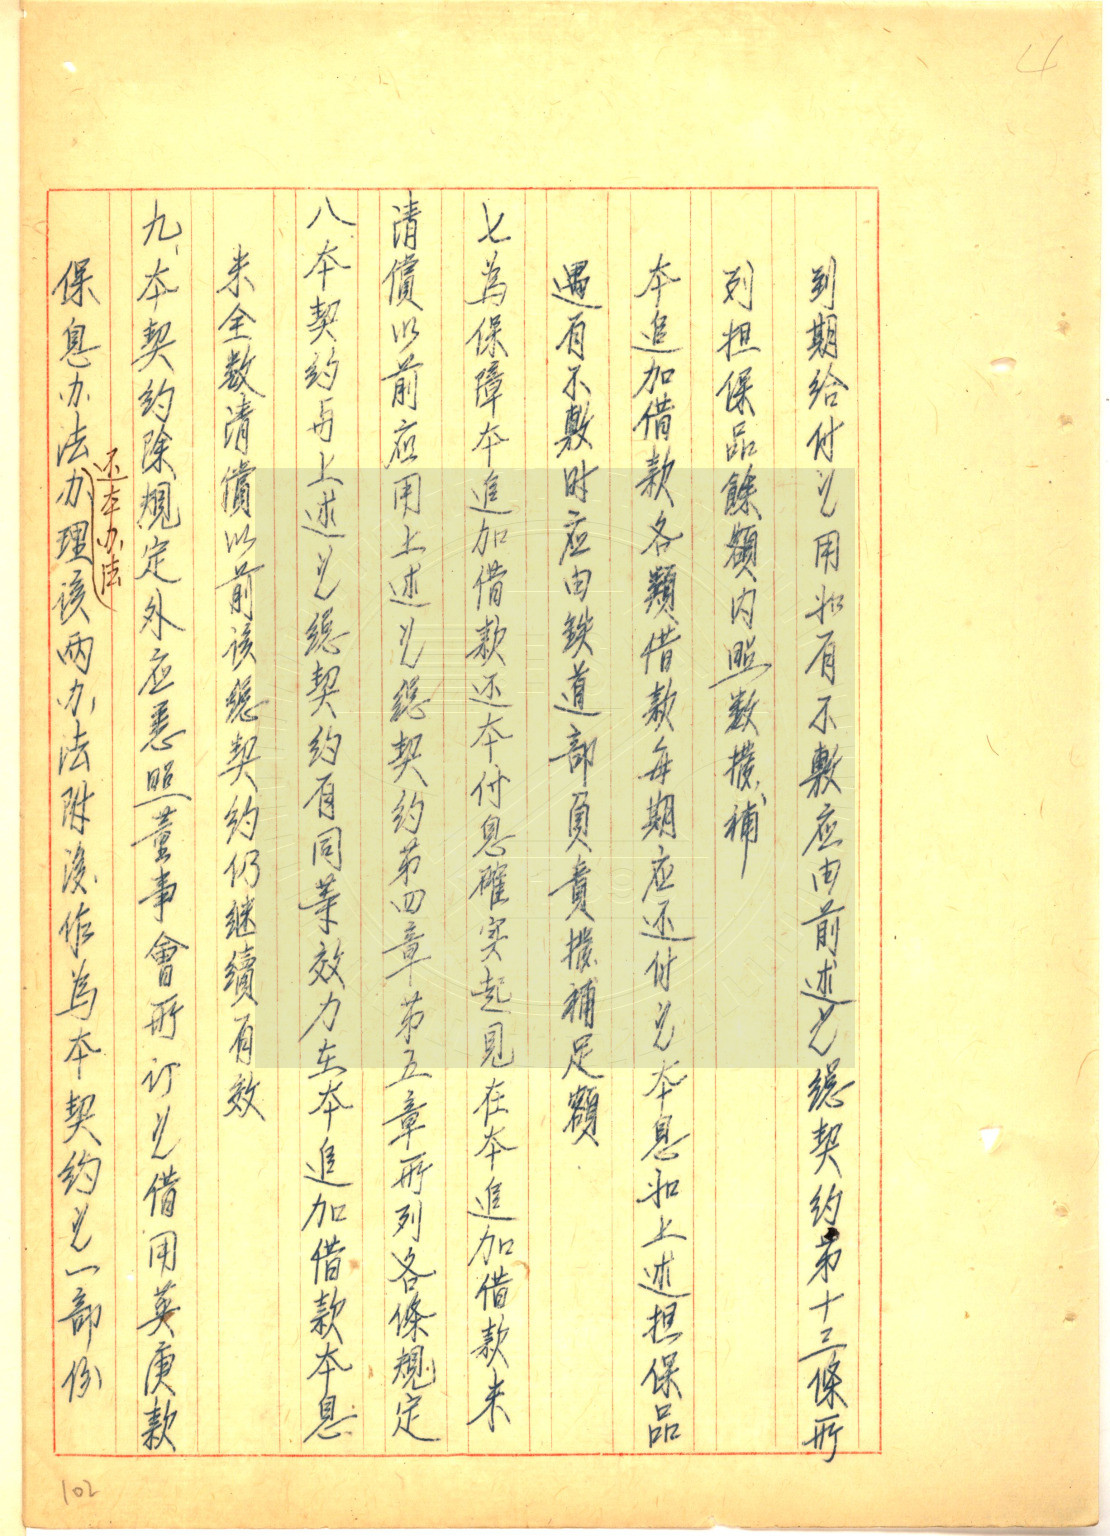 4
到期給付之用如有不敷应由前述之總契約第十三條所
列担保品餘額内照数撥補
本追加借款各類借款每期应还付之本息如上述担保品
遇有不敷时应由鉄道部負責撥補足額
七為保障本追加借款还本付息確实起見在本追加借款未
清償以前应用上述之總契約第四章第五章所列各條規定
八本契約与上述之總契約有同等效力在本追加借款本息
未全数清償以前该總契約仍継續有效
九、本契約除規定外应悉照董事會所订之借用英庚款
还本办法
保息办法办理该两办法附後作為本契約之一部份
102